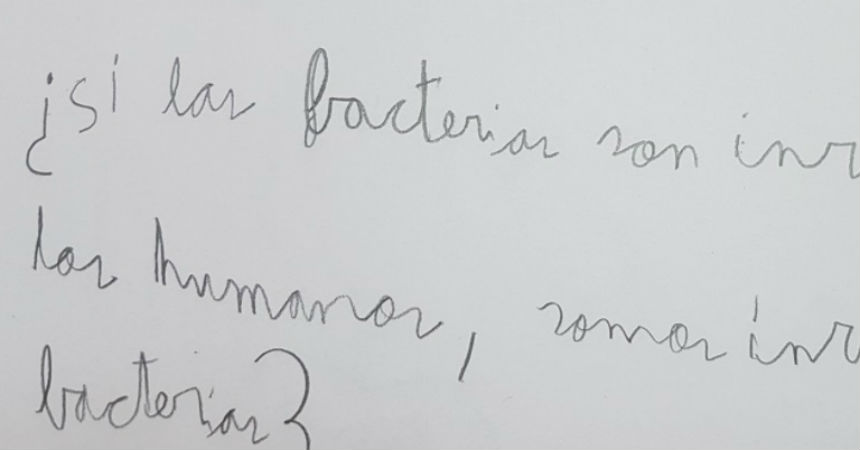 ¿si las bacterias son
los humanos, somos
bacterias?